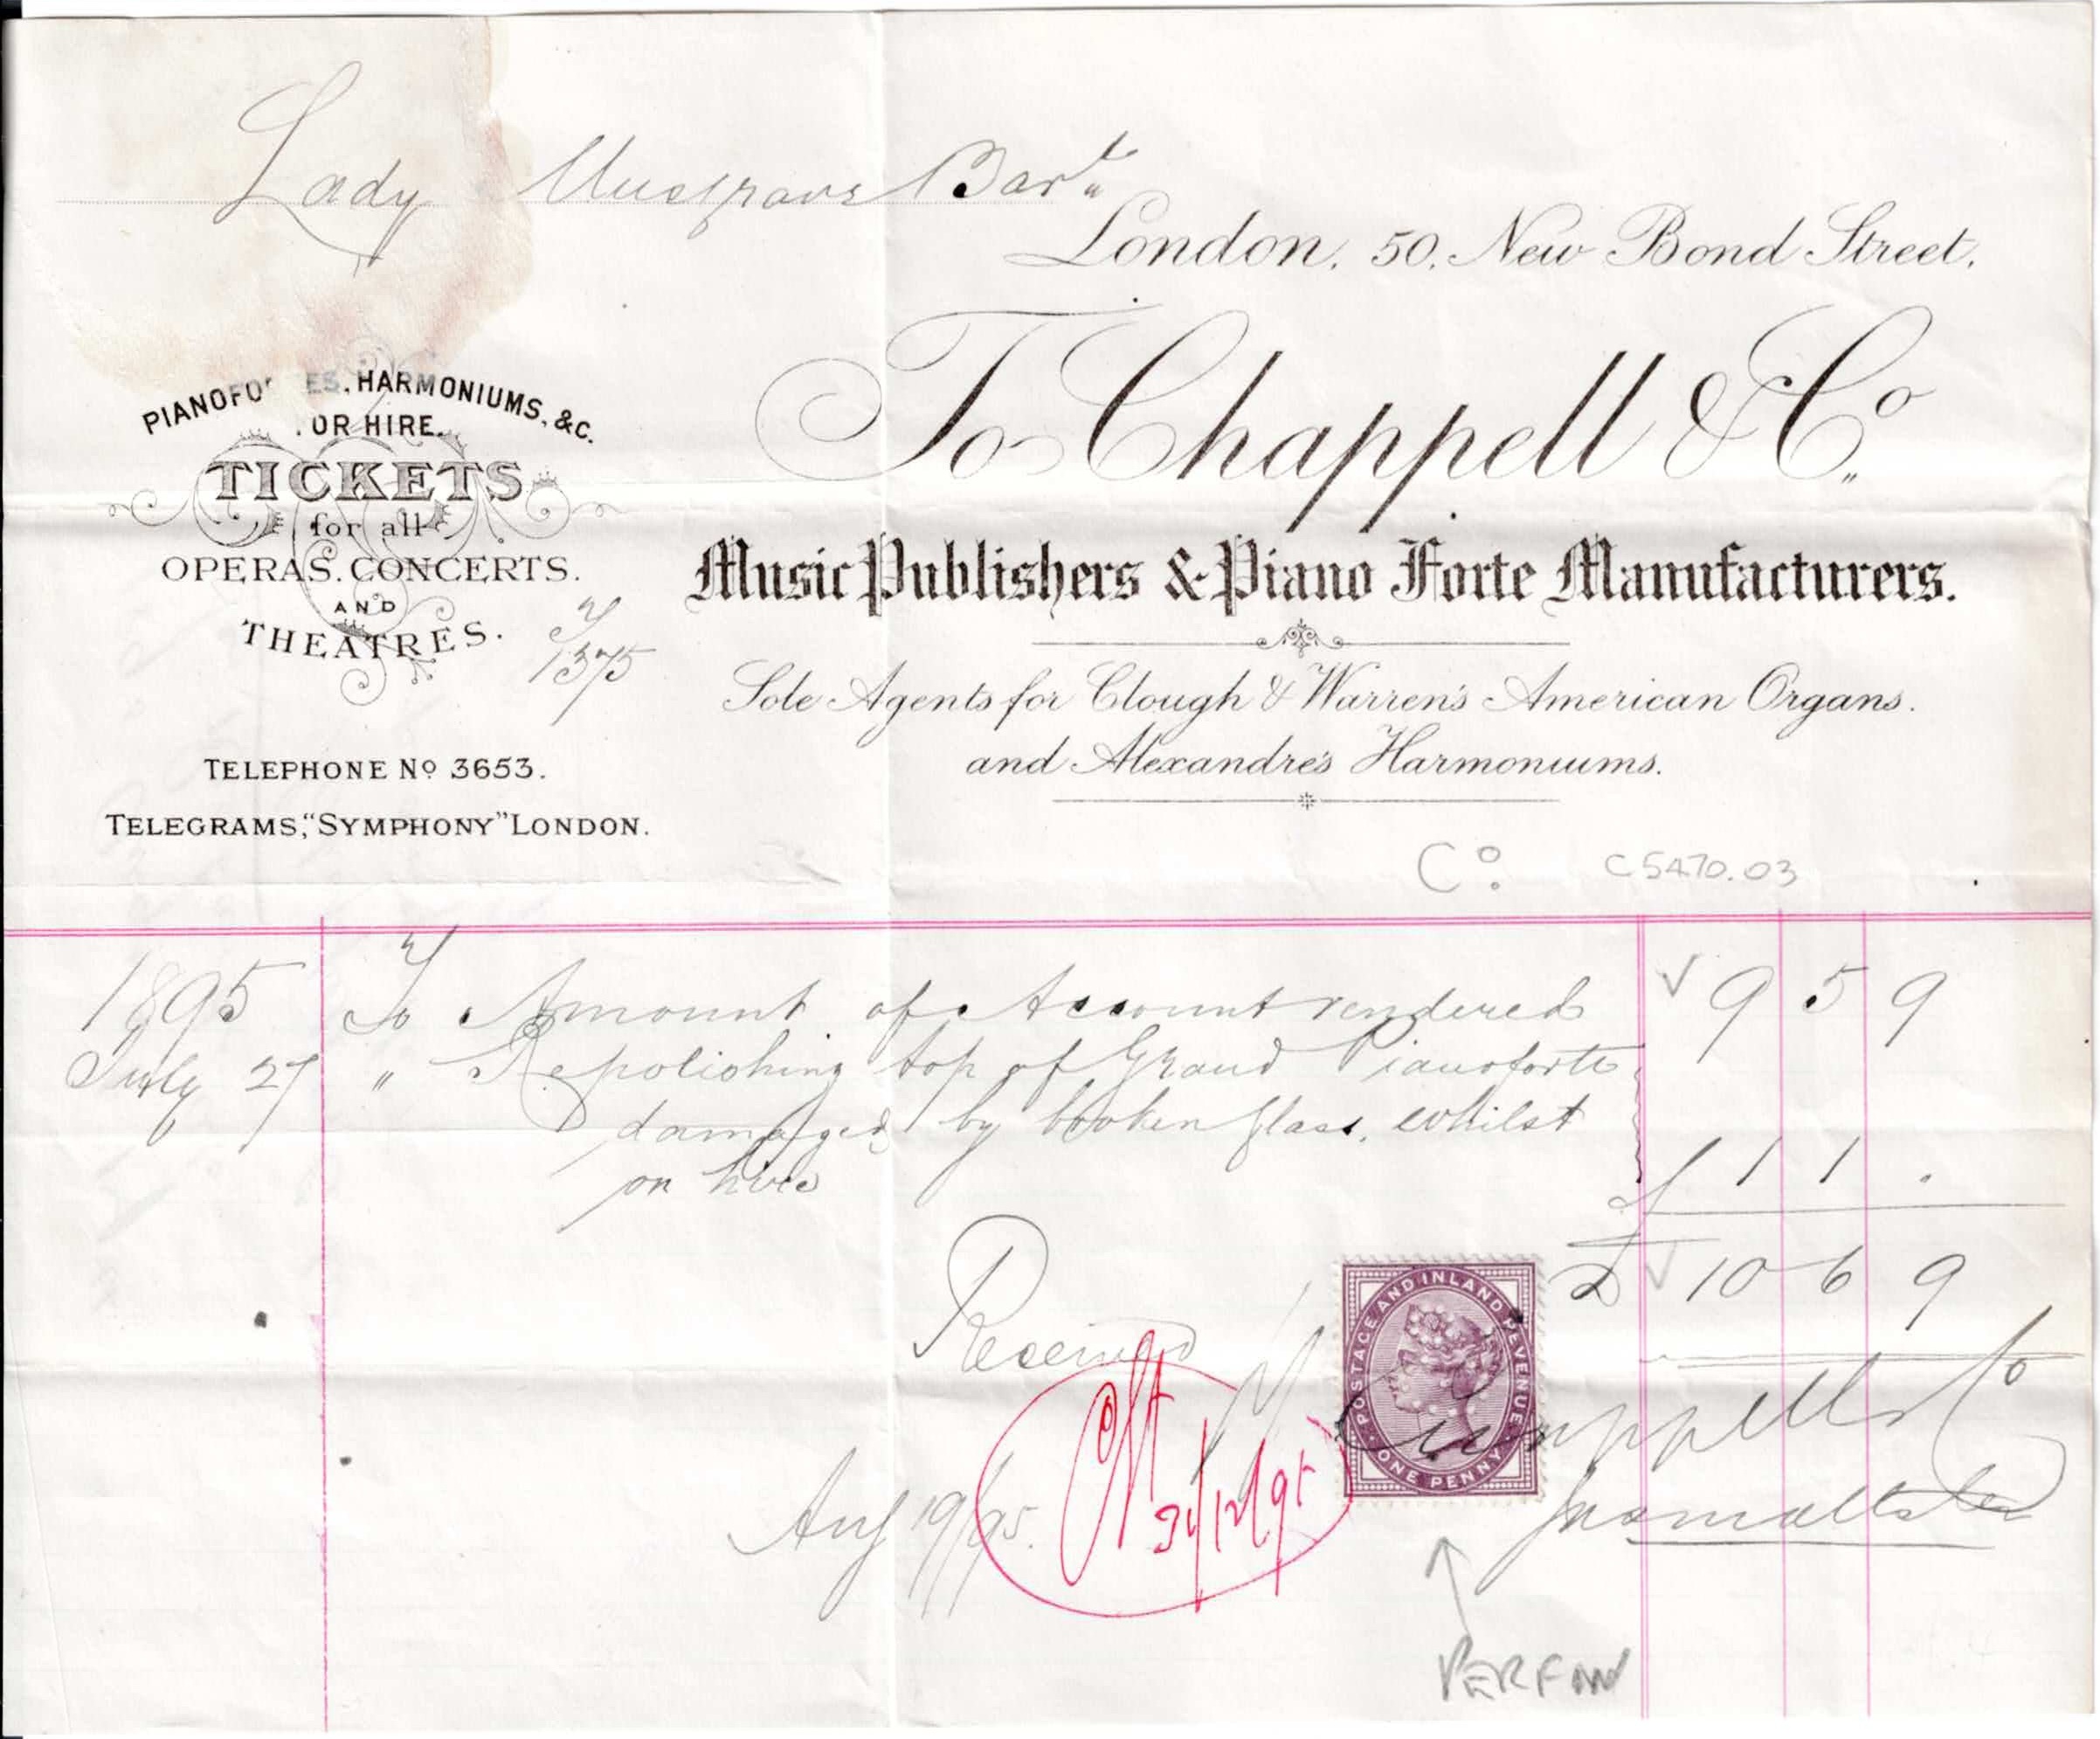 Lady Musgrave Bart
London, 50, New Bond Street.
To Chappell & Co.
Music Publishers & Piano Forte Manufacturers.
Sole Agents for Clough & Warren's American Organs.
and Alexandre's Harmoniums.
PIANOFO ES, HARMONIUMS, &C.
OR HIRE.
TICKETS
for all
OPERAS. CONCERTS.
AND
THEATRES.
1375
TELEPHONE No 3653.
TELEGRAMS, "SYMPHONY" LONDON.
Co. C5470.03
1895 To Amount of Account rendered 9 5 9
July 27 " Repolishing top of Grand Pianoforte
damaged by broken glass, whilst
on hire 1 1 .
£ 10 6 9
Received
POSTAGE AND INLAND REVENUE
ONE PENNY
Chappell & Co
Aug 19/95.
31/12/95
PERFIN